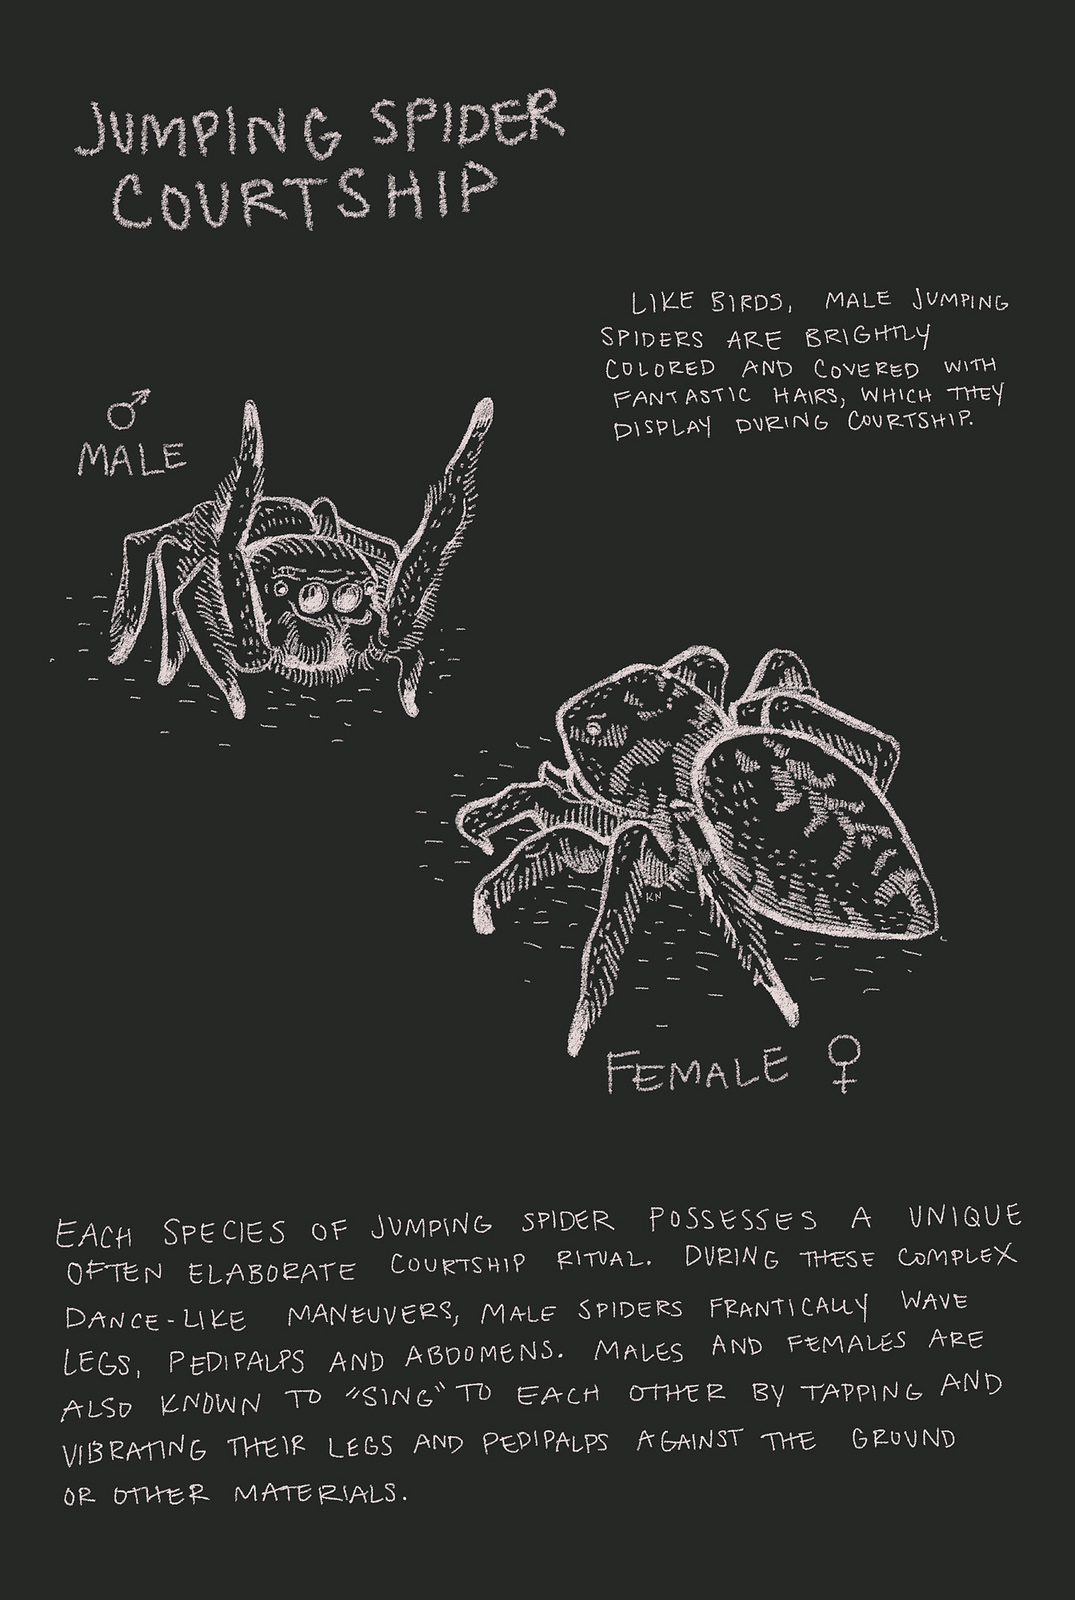 JUMPING SPIDER
COURTSHIP
LIKE BIRDS, MALE JUMPING
SPIDERS ARE BRIGHTLY
COLORED AND COVERED WITH
FANTASTIC HAIRS, WHICH THEY
DISPLAY DURING COURTSHIP.
♂
MALE
KN
FEMALE ♀
EACH SPECIES OF JUMPING SPIDER POSSESSES A UNIQUE
OFTEN ELABORATE COURTSHIP RITUAL. DURING THESE COMPLEX
DANCE-LIKE MANEUVERS, MALE SPIDERS FRANTICALLY WAVE
LEGS, PEDIPALPS AND ABDOMENS. MALES AND FEMALES ARE
ALSO KNOWN TO "SING" TO EACH OTHER BY TAPPING AND
VIBRATING THEIR LEGS AND PEDIPALPS AGAINST THE GROUND
OR OTHER MATERIALS.